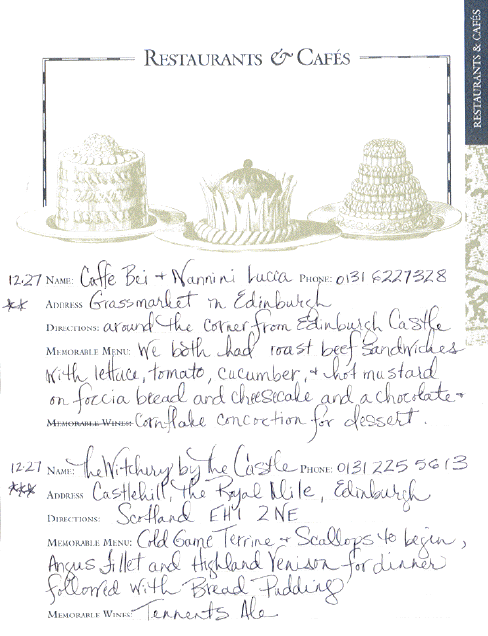 RESTAURANTS & CAFÉS
RESTAURANTS & CAFÉS
12.27 NAME: Caffe Bei + Nannini Lucia PHONE: 0131 6227328
** ADDRESS Grassmarket in Edinburgh
DIRECTIONS: around the corner from Edinburgh Castle
MEMORABLE MENU: We both had roast beef sandwiches
with lettuce, tomato, cucumber, + hot mustard
on foccia bread and cheesecake and a chocolate +
MEMORABLE WINES: Cornflake concoction for dessert.
12.27 NAME: The Witchery by the Castle PHONE: 0131 225 5613
*** ADDRESS Castlehill, The Royal Mile, Edinburgh
DIRECTIONS: Scotland EH1 2NE
MEMORABLE MENU: Cold Game Terrine + Scallops to begin,
Angus fillet and Highland Venison for dinner
followed with Bread Pudding
MEMORABLE WINES: Tennents Ale